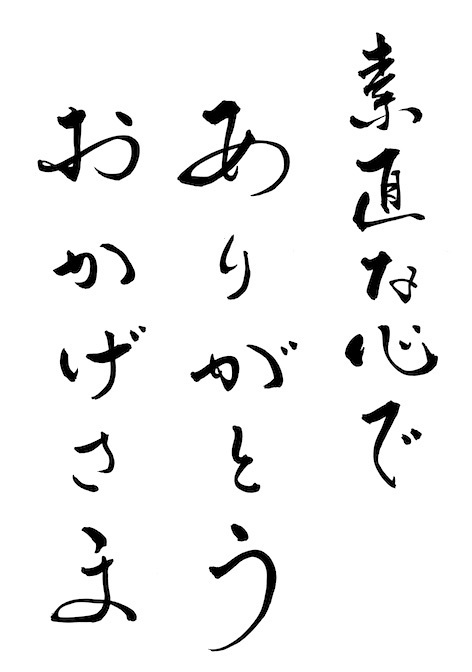 素直な心で
ありがとう
おかげさま